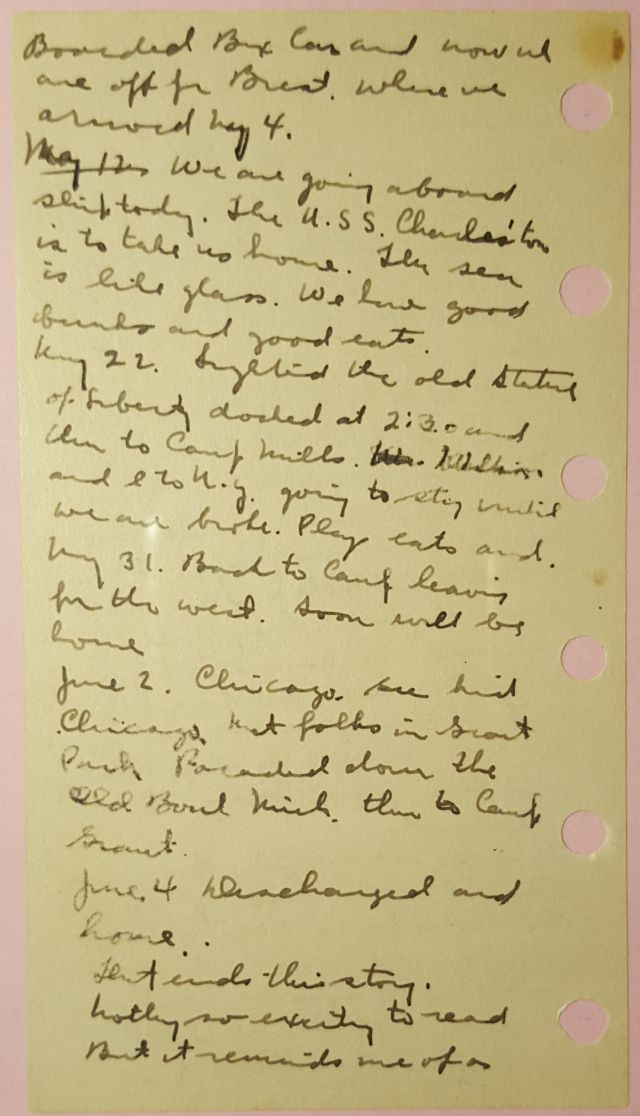 Boarded Box Car and now we
are off for Brest. where we
arrived May 4.
May 12 We are going aboard
ship today. The U.S.S. Charleston
is to take us home. The sea
is like glass. We have good
bunks and good eats.
May 22. Sighted the old Statue
of Liberty docked at 2:30 and
then to Camp Mills.
and I to N.Y. going to stay until
we are broke. Play eats and.
May 31. Back to Camp leaving
for the west. Soon will be
home
June 2. Chicago. we hit
Chicago, met folks in Grant
Park Paraded down the
Old Boul Mich. then to Camp
Grant.
June 4 Discharged and
home..
That ends this story.
nothing so exciting to read
But it reminds me of as